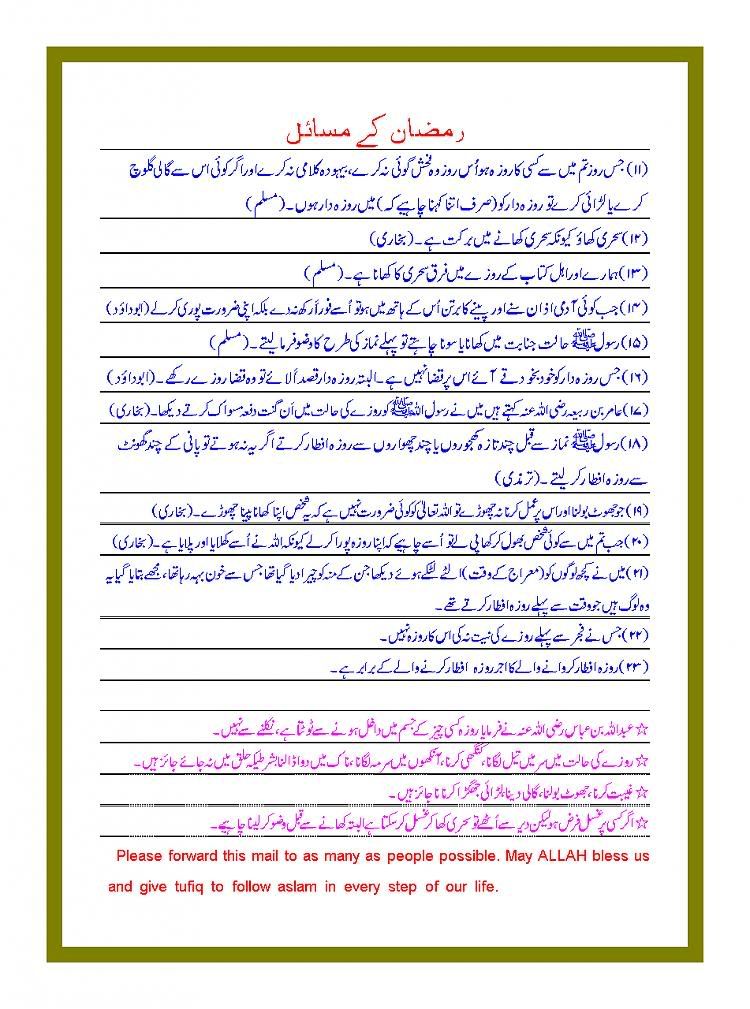 رمضان کے مسائل
(۱۱) جس روز تم میں سے کسی کا روزہ ہو اُس روز وہ فحش گوئی نہ کرے، بیہودہ کلامی نہ کرے اور اگر کوئی اس سے گالی گلوچ
کرے یا لڑائی کرے تو روزہ دار کو (صرف اتنا کہنا چاہیے کہ) میں روزہ دار ہوں۔ (مسلم)
(۱۲) سحری کھاؤ کیونکہ سحری کھانے میں برکت ہے۔ (بخاری)
(۱۳) ہمارے اور اہل کتاب کے روزے میں فرق سحری کا کھانا ہے۔ (مسلم)
(۱۴) جب کوئی آدمی اذان سنے اور پینے کا برتن اُس کے ہاتھ میں ہو تو اُسے فوراً رکھ نہ دے بلکہ اپنی ضرورت پوری کرلے (ابوداؤد)
(۱۵) رسول ﷺ حالت جنابت میں کھانا یا سونا چاہتے تو پہلے نماز کی طرح کا وضو فرما لیتے۔ (مسلم)
(۱۶) جس روزہ دار کو خود بخود قے آئے اس پر قضا نہیں ہے۔ البتہ روزہ دار قصداً لائے تو وہ قضا روزے رکھے۔ (ابوداؤد)
(۱۷) عامر بن ربیعہ رضی اللہ عنہ کہتے ہیں میں نے رسول اللہ ﷺ کو روزے کی حالت میں اَن گنت دفعہ مسواک کرتے دیکھا۔ (بخاری)
(۱۸) رسول ﷺ نماز سے قبل چند تازہ کھجوروں یا چند چھواروں سے روزہ افطار کرتے اگر یہ نہ ہوتے تو پانی کے چند گھونٹ
سے روزہ افطار کر لیتے ۔ (ترمذی)
(۱۹) جو جھوٹ بولنا اور اس پر عمل کرنا نہ چھوڑے تو اللہ تعالیٰ کو کوئی ضرورت نہیں ہے کہ یہ شخص اپنا کھانا پینا چھوڑے۔ (بخاری)
(۲۰) جب تم میں سے کوئی شخص بھول کر کھا پی لے تو اُسے چاہیے کہ اپنا روزہ پورا کر لے کیونکہ اللہ نے اُسے کھلایا اور پلایا ہے۔ (بخاری)
(۲۱) میں نے کچھ لوگوں کو (معراج کے وقت) الٹے لٹکے ہوئے دیکھا جن کے منہ کو چیرا دیا گیا تھا جس سے خون بہہ رہا تھا، مجھے بتایا گیا یہ
وہ لوگ ہیں جو وقت سے پہلے روزہ افطار کرتے تھے۔
(۲۲) جس نے فجر سے پہلے روزے کی نیت نہ کی اس کا روزہ نہیں۔
(۲۳) روزہ افطار کروانے والے کا اجر روزہ افطار کرنے والے کے برابر ہے۔
☆ عبداللہ بن عباس رضی اللہ عنہ نے فرمایا روزہ کسی چیز کے جسم میں داخل ہونے سے ٹوٹتا ہے، نکلنے سے نہیں۔
☆ روزے کی حالت میں سر میں تیل لگانا، کنگھی کرنا، آنکھوں میں سرمہ لگانا، ناک میں دوا ڈالنا بشرطیکہ حلق میں نہ جائے جائز ہیں۔
☆ غیبت کرنا، جھوٹ بولنا، گالی دینا، لڑائی جھگڑا کرنا ناجائز ہیں۔
☆ اگر کسی پر غسل فرض ہو لیکن دیر سے اُٹھے تو سحری کھا کر غسل کر سکتا ہے البتہ کھانے سے قبل وضو کر لینا چاہیے۔
Please forward this mail to as many as people possible. May ALLAH bless us
and give tufiq to follow aslam in every step of our life.